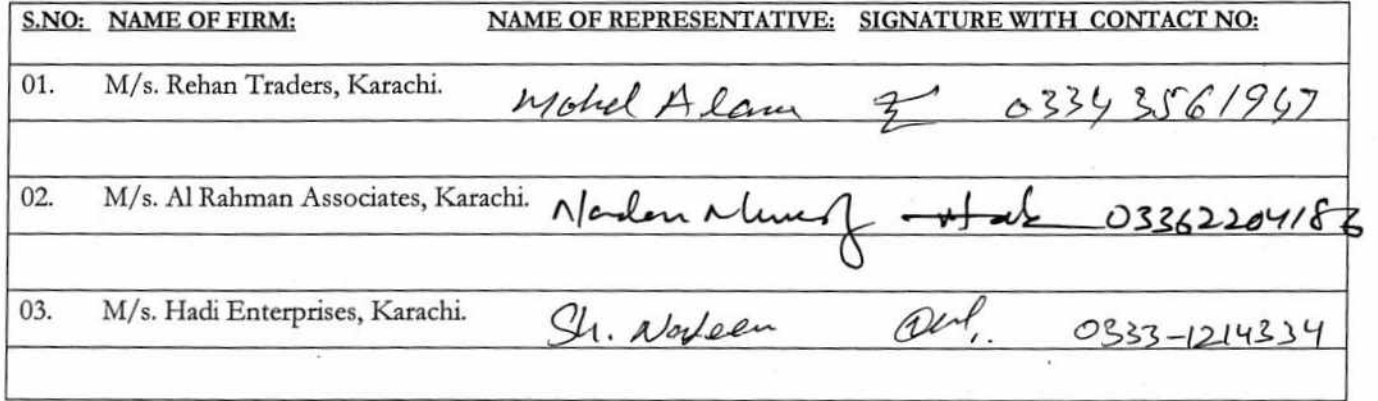 S.NO: NAME OF FIRM: NAME OF REPRESENTATIVE: SIGNATURE WITH CONTACT NO:
01. M/s. Rehan Traders, Karachi. Mohd Alam 0334 3561947
02. M/s. Al Rahman Associates, Karachi. 03362204183
03. M/s. Hadi Enterprises, Karachi. Sh. Nadeem 0333-1214334